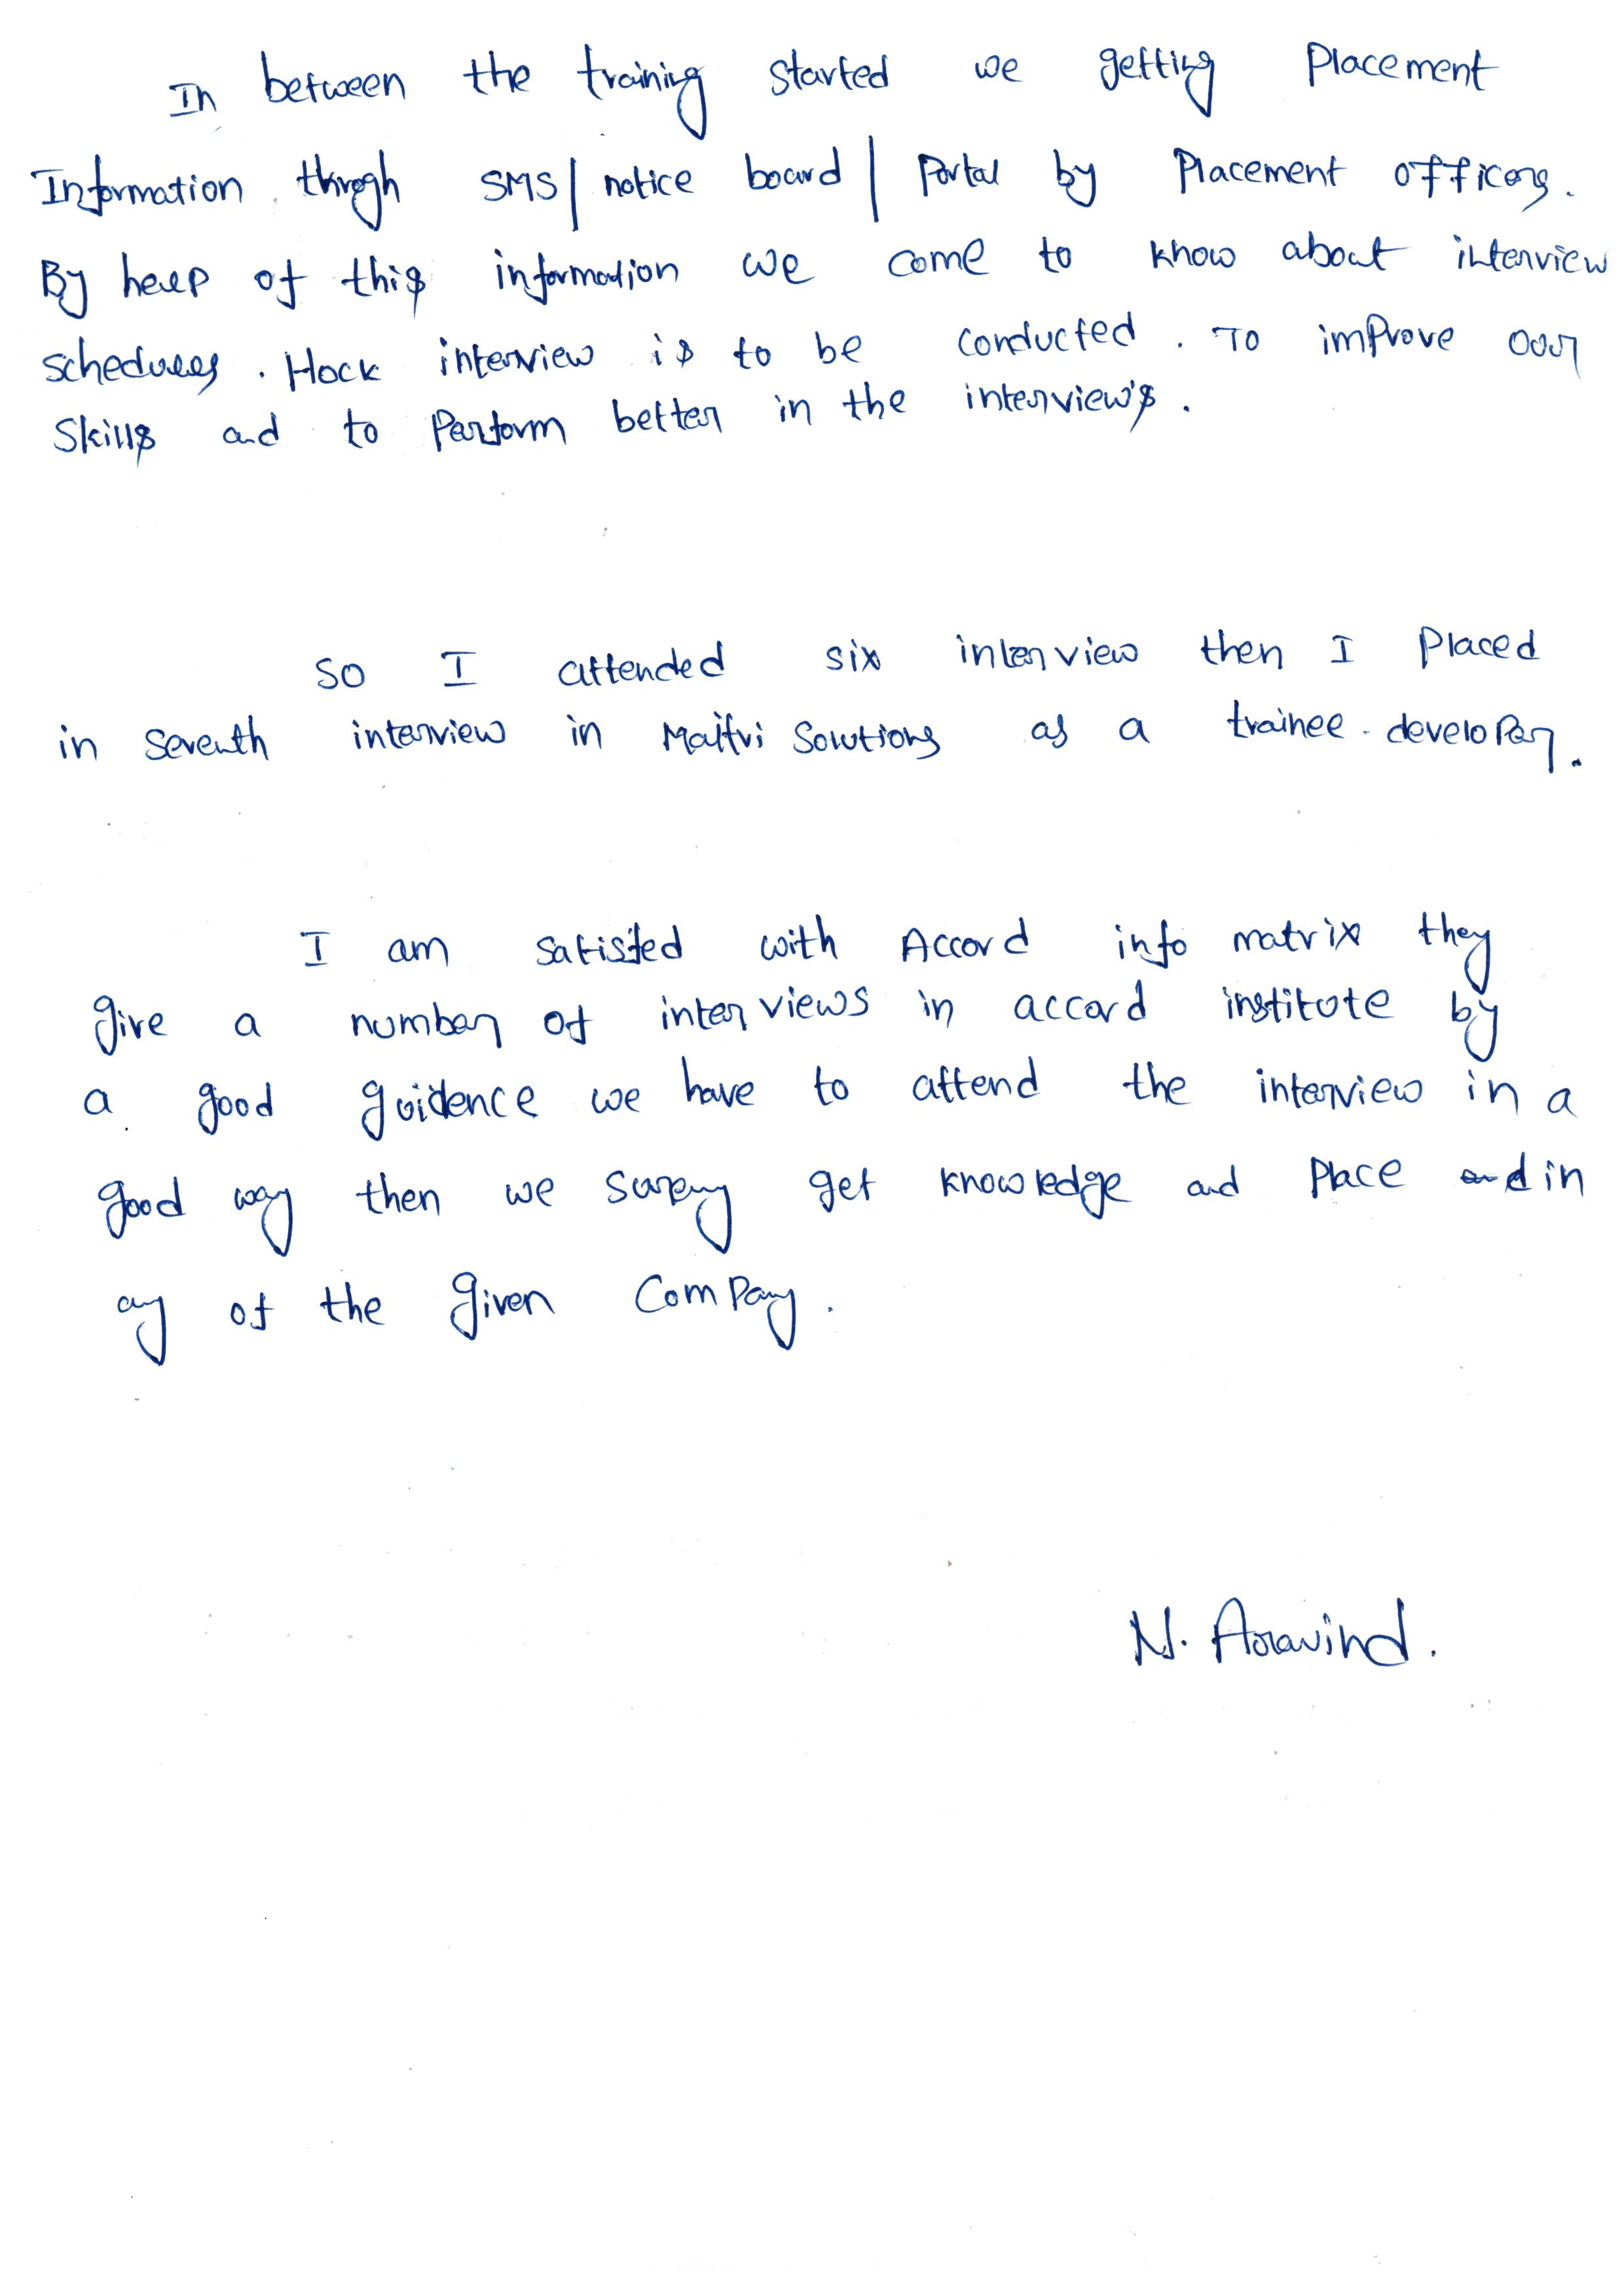 In between the training started we getting Placement
Information throgh SMS| notice board | Portal by Placement officers.
By help of this information we come to know about interview
schedules. Mock interview is to be conducted. To improve our
Skills and to Perform better in the interview's.
So I attended six interview then I Placed
in seventh interview in Maitri Solutions as a trainee developer.
I am satisfied with Accord info matrix they
give a number of interviews in accord institute by
a good guidence we have to attend the interview in a
good way then we surely get knowledge and Place in
any of the given Company.
N. Aravind.